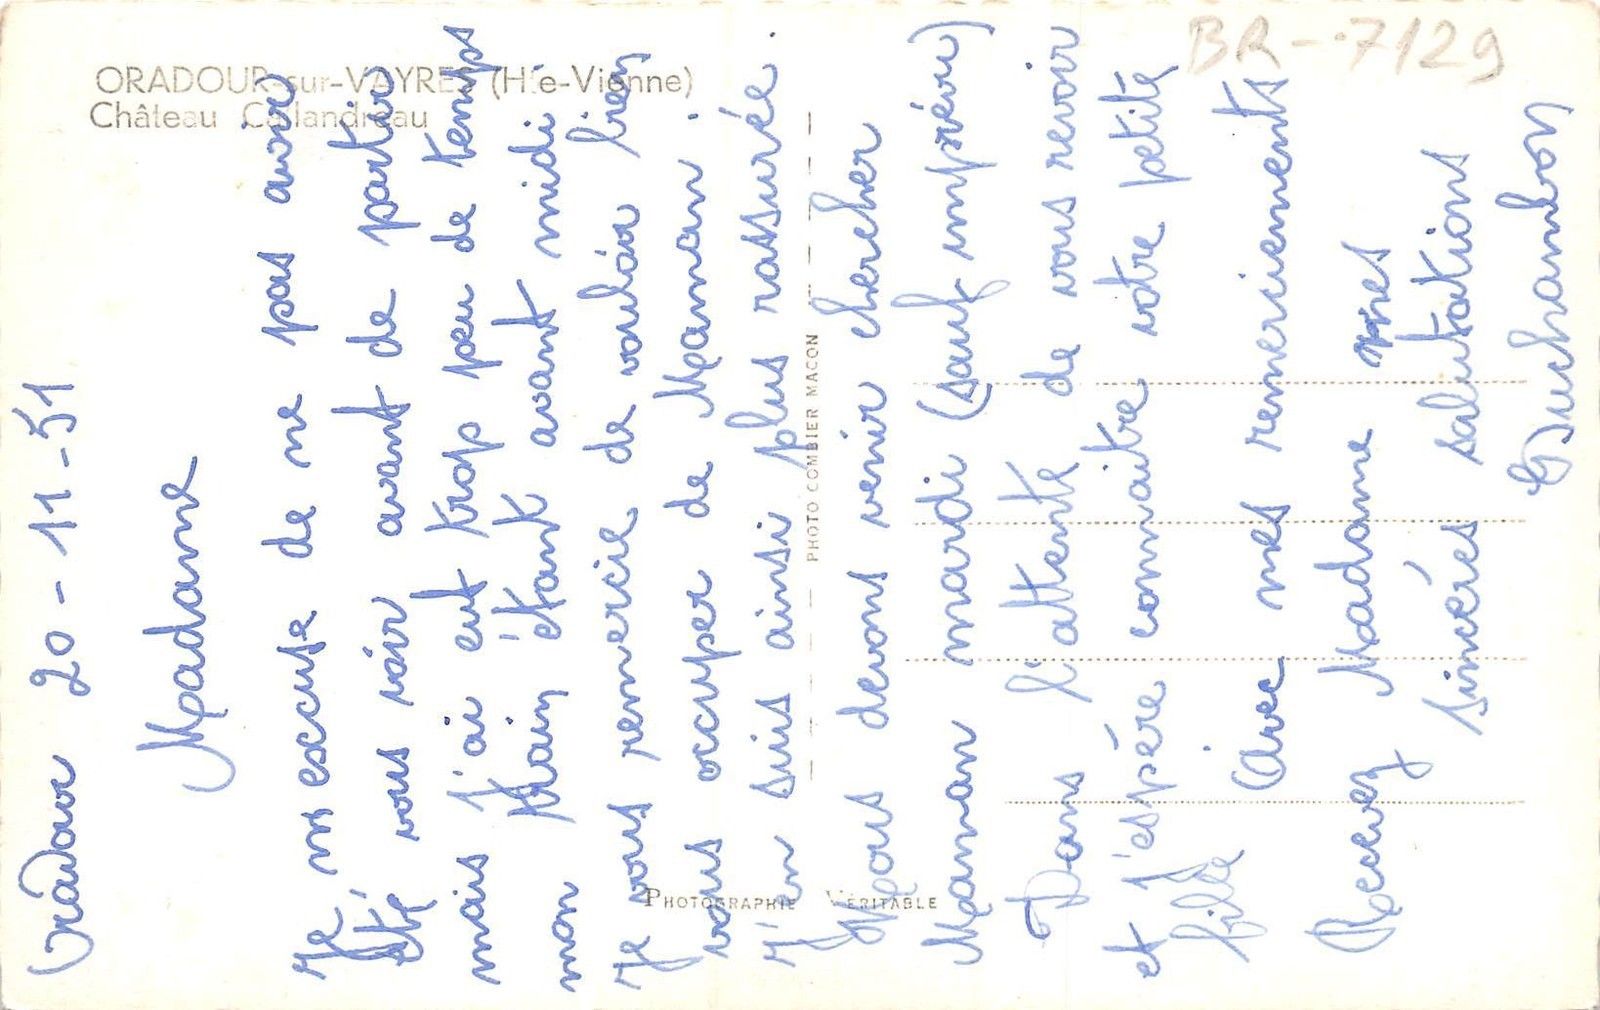 ORADOUR-sur-VAYRES (Hte-Vienne)
Château Callandreau
BR-7129
PHOTO COMBIER MACON
PHOTOGRAPHIE VÉRITABLE
Oradour 20-11-51
Madame
Je m'escuse de ne pas avoir
été vous voir avant de partir
mais j'ai eut trop peu de temps
mon train étant avant midi.
Je vous remercie de vouloir bien
vous occuper de Maman.
J'en suis ainsi plus rassurée.
Nous devons venir chercher
Maman mardi (sauf imprévu)
Dans l'attente de vous revoir
et j'espére connaitre votre petite
fille. Avec mes remerciements
Recevez Madame mes
sincéres salutations
G Duchambon